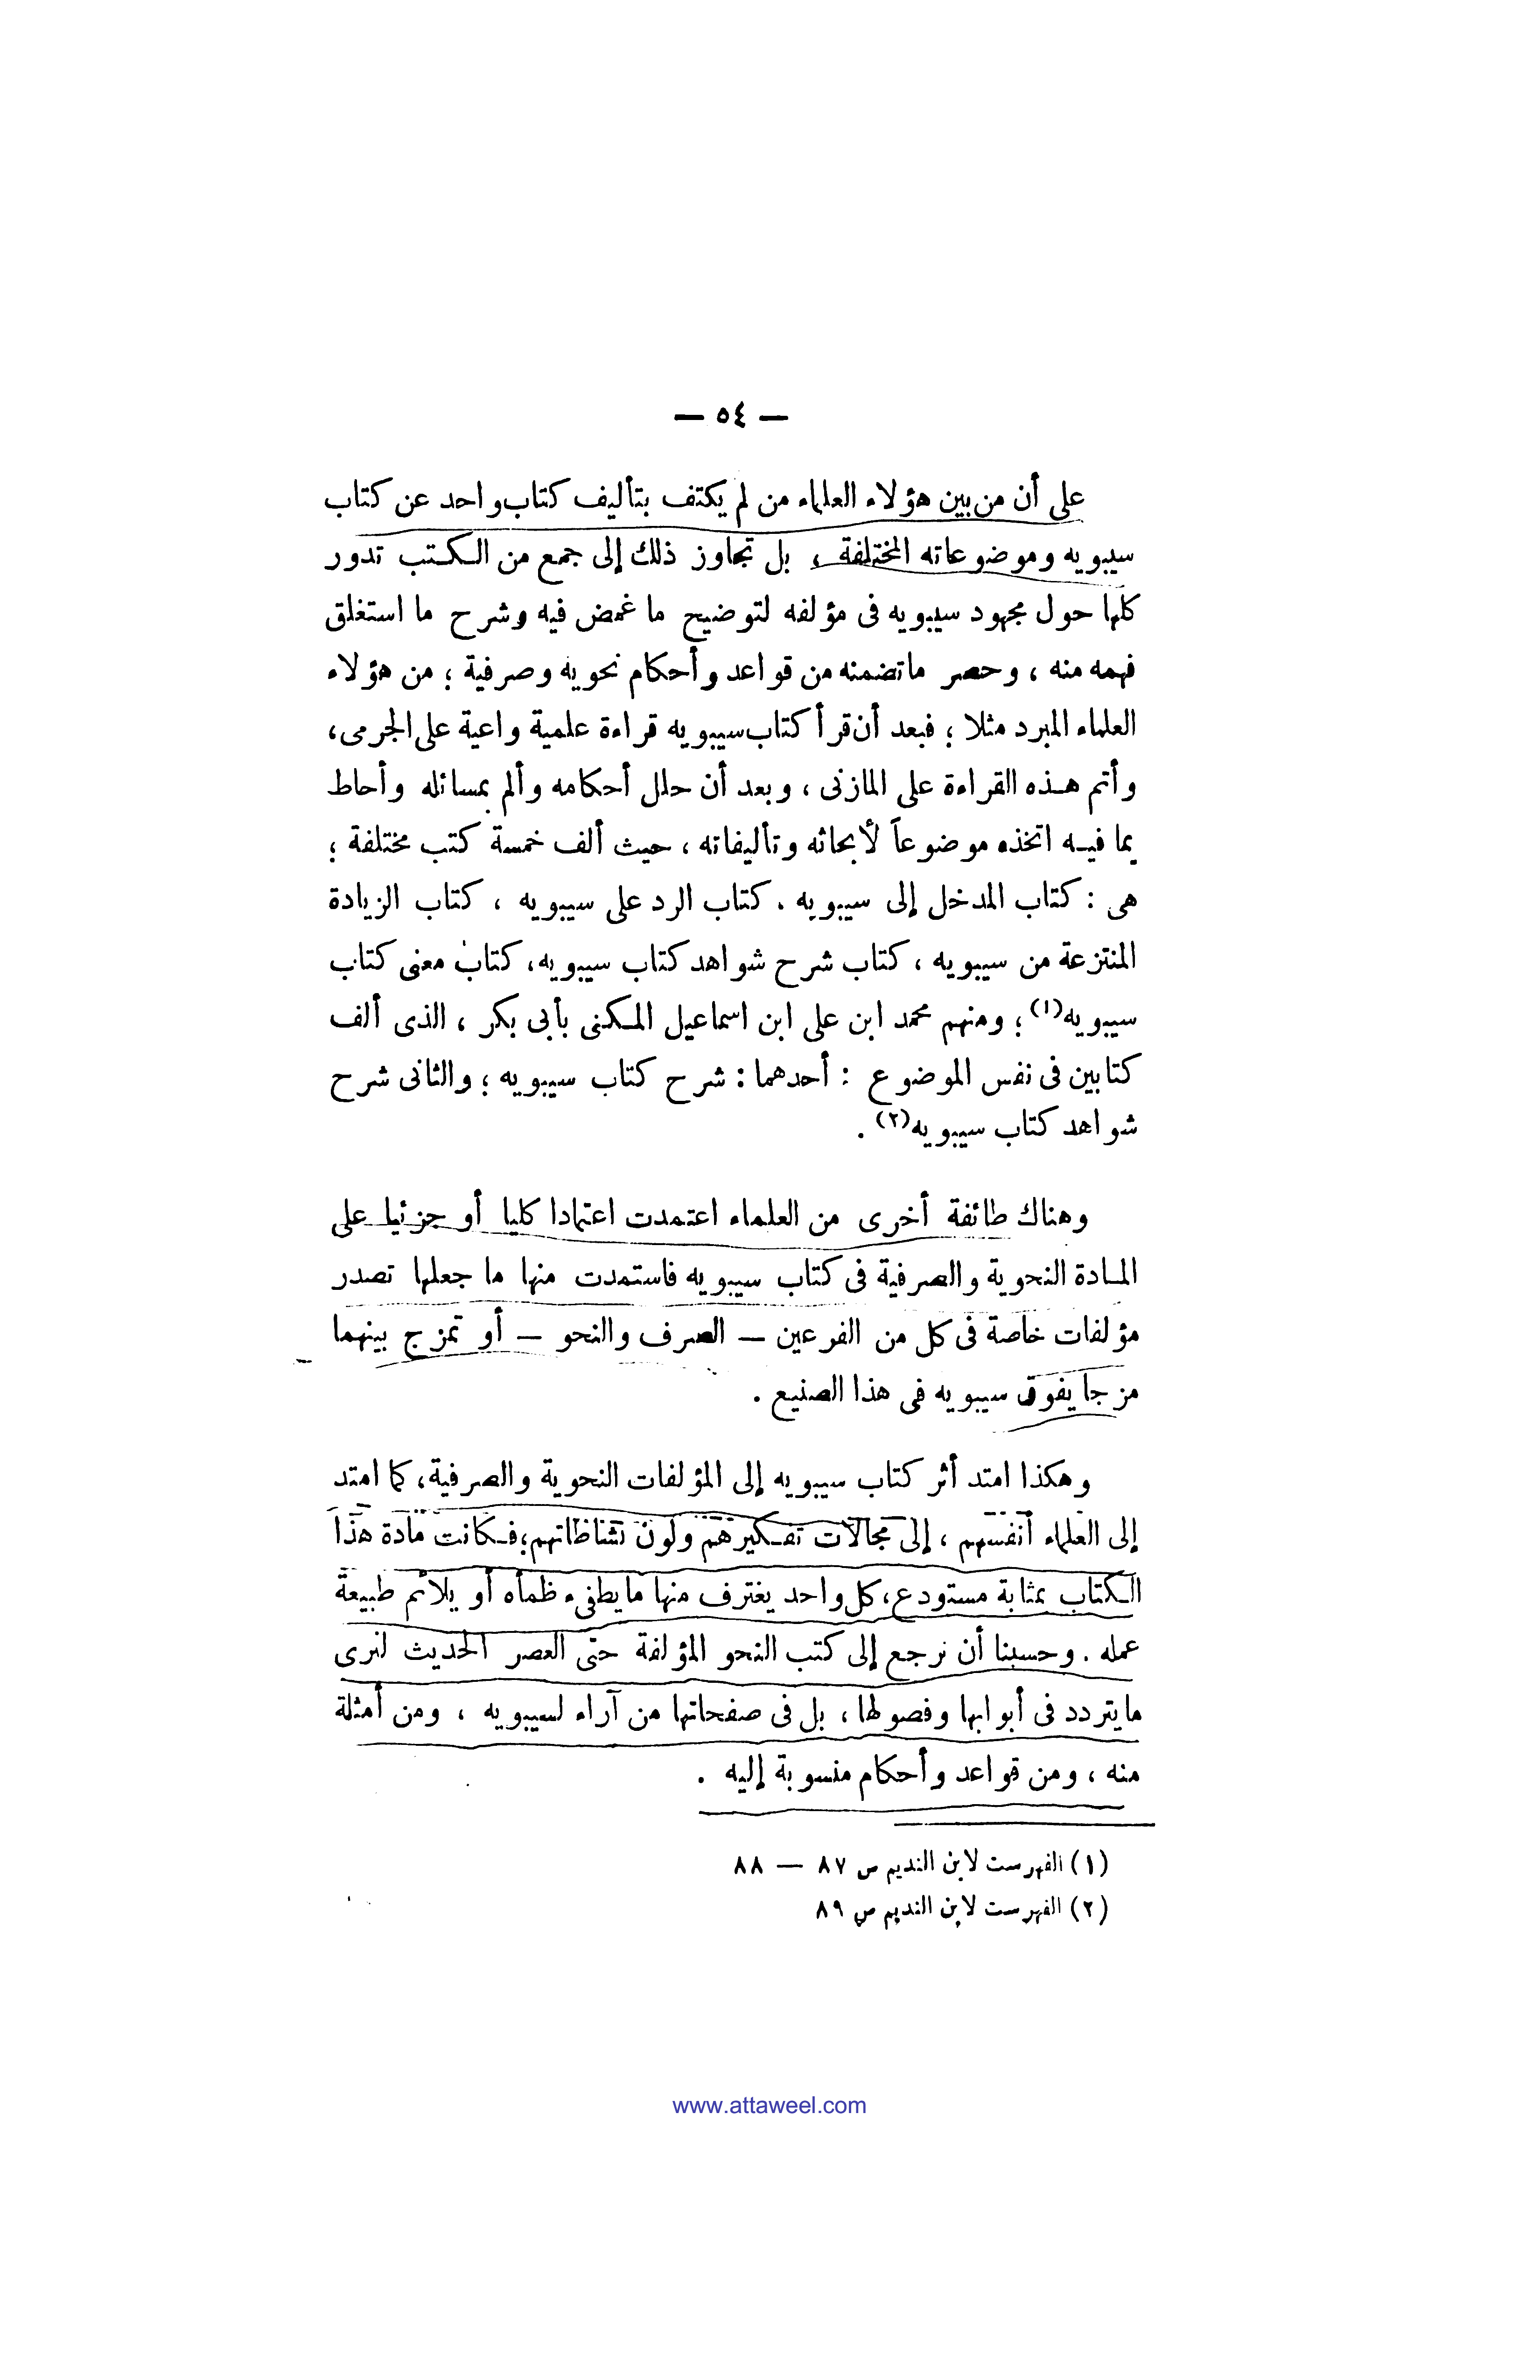 — ٥٤ —
على أن من بين هؤلاء العلماء من لم يكتف بتأليف كتاب واحد عن كتاب
سيبويه وموضوعاته المختلفة ، بل تجاوز ذلك إلى جمع من الكتب تدور
كلها حول مجهود سيبويه فى مؤلفه لتوضيح ما غمض فيه وشرح ما استغلق
فهمه منه ، وحصر ماتضمنه من قواعد وأحكام نحويه وصرفية ؛ من هؤلاء
العلماء المبرد مثلا ؛ فبعد أن قرأ كتاب سيبويه قراءة علمية واعية على الجرمى ،
وأتم هذه القراءة على المازنى ، وبعد أن حلل أحكامه وألم بمسائله وأحاط
بما فيه اتخذه موضوعاً لأبحاثه وتأليفاته ، حيث ألف خمسة كتب مختلفة ؛
هى : كتاب المدخل إلى سيبويه . كتاب الرد على سيبويه ، كتاب الزيادة
المنتزعة من سيبويه ، كتاب شرح شواهد كتاب سيبويه ، كتاب معنى كتاب
سيبويه(١) ؛ ومنهم محمد ابن على ابن اسماعيل المكنى بأبى بكر ، الذى ألف
كتابين فى نفس الموضوع : أحدهما : شرح كتاب سيبويه ؛ والثانى شرح
شواهد كتاب سيبويه(٢) .
وهناك طائفة أخرى من العلماء اعتمدت اعتمادا كليا أو جزئيا على
المادة النحوية والصرفية فى كتاب سيبويه فاستمدت منها ما جعلها تصدر
مؤلفات خاصة فى كل من الفرعين — الصرف والنحو — أو تمزج بينهما
مزجا يفوق سيبويه فى هذا الصنيع .
وهكذا امتد أثر كتاب سيبويه إلى المؤلفات النحوية والصرفية ، كما امتد
إلى العلماء أنفسهم ، إلى مجالات تفكيرهم ولون نشاطاتهم ؛ فكانت مادة هذا
الكتاب بمثابة مستودع ، كل واحد يغترف منها مايطفىء ظمأه أو يلائم طبيعة
عمله . وحسبنا أن نرجع إلى كتب النحو المؤلفة حتى العصر الحديث لنرى
مايتردد فى أبوابها وفصولها ، بل فى صفحاتها من آراء لسيبويه ، ومن أمثلة
منه ، ومن قواعد وأحكام منسوبة إليه .
(١) الفهرست لابن النديم ص ٨٧ — ٨٨
(٢) الفهرست لابن النديم ص ٨٩
www.attaweel.com